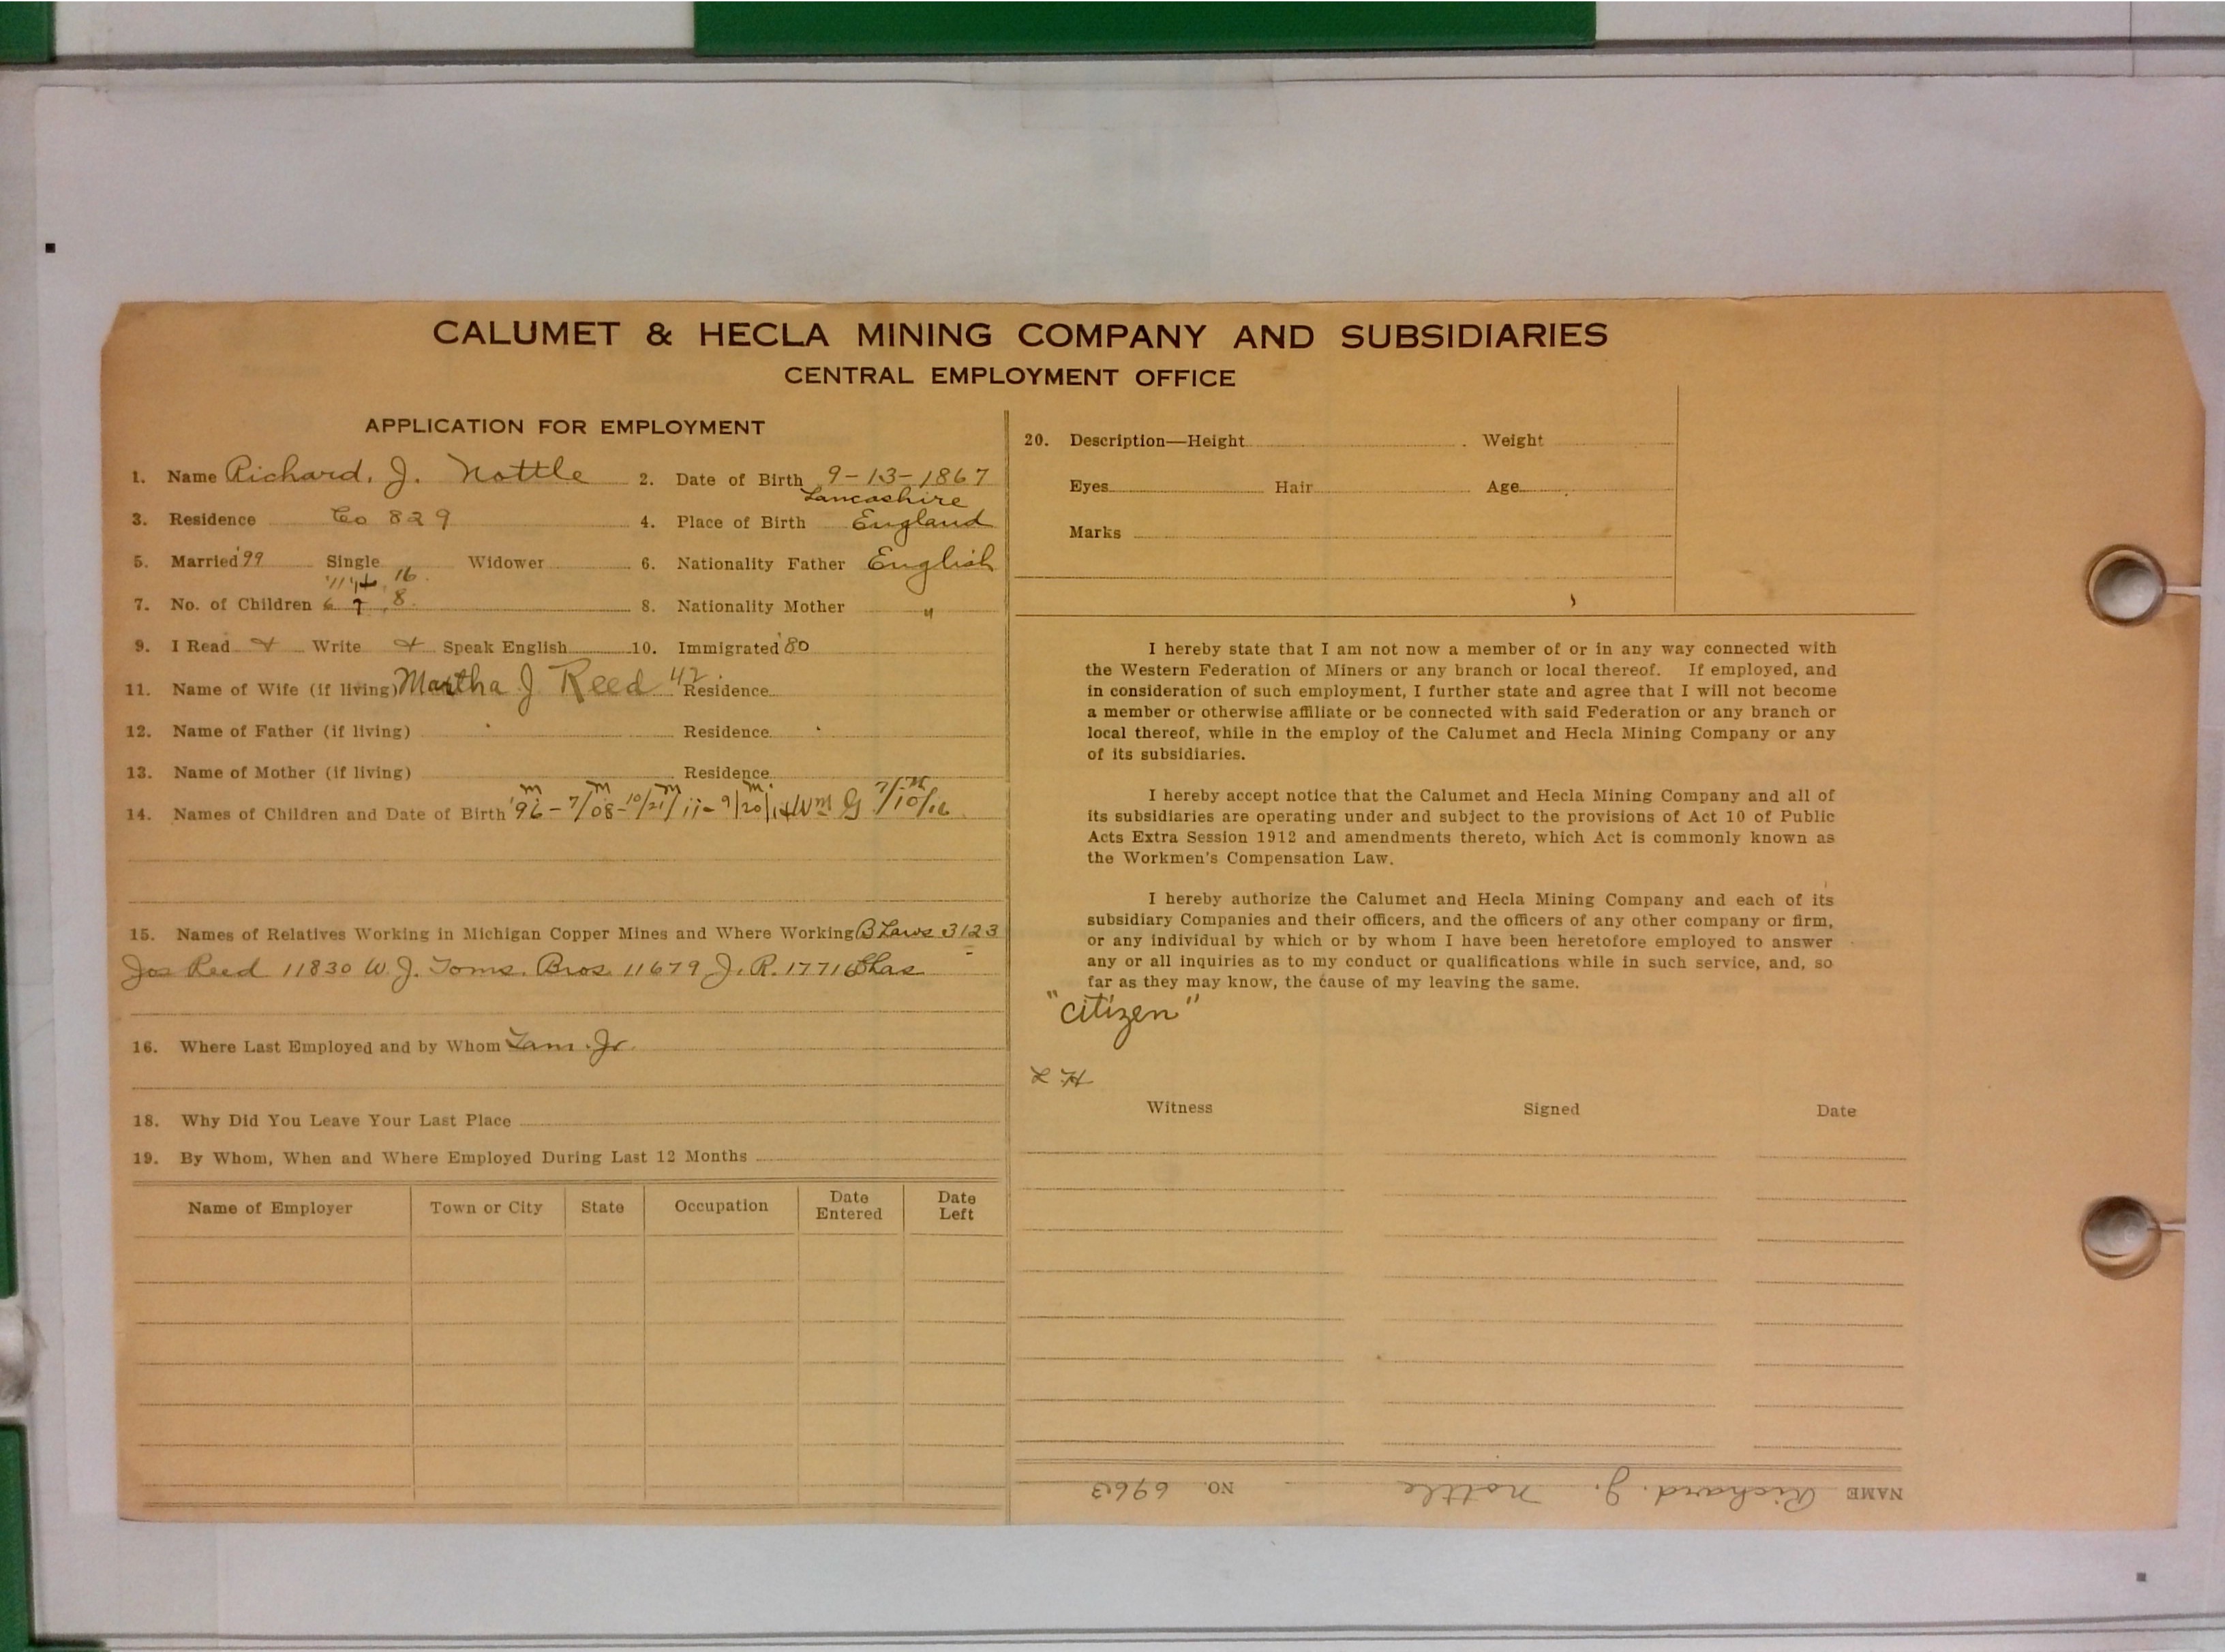 CALUMET & HECLA MINING COMPANY AND SUBSIDIARIES
CENTRAL EMPLOYMENT OFFICE
APPLICATION FOR EMPLOYMENT
1. Name Richard. J. Nottle 2. Date of Birth 9-13-1867
3. Residence Co 829 4. Place of Birth Lancashire England
5. Married '99 Single Widower 6. Nationality Father English
'11 '14 16
7. No. of Children 6 7 8 8. Nationality Mother "
9. I Read Write Speak English 10. Immigrated '80
11. Name of Wife (if living) Martha J Reed 42 Residence
12. Name of Father (if living) Residence
13. Name of Mother (if living) Residence
14. Names of Children and Date of Birth '96 - 7/08 - 10/21/11 - 9/20/14 Wm G 7/10/16
15. Names of Relatives Working in Michigan Copper Mines and Where Working B Laws 3123
Jos Reed 11830 W. J. Toms. Bros. 11679 J. R. 17716 Chas
16. Where Last Employed and by Whom Tam. Jr.
18. Why Did You Leave Your Last Place
19. By Whom, When and Where Employed During Last 12 Months
Name of Employer Town or City State Occupation Date Entered Date Left
20. Description—Height Weight
Eyes Hair Age
Marks
I hereby state that I am not now a member of or in any way connected with
the Western Federation of Miners or any branch or local thereof. If employed, and
in consideration of such employment, I further state and agree that I will not become
a member or otherwise affiliate or be connected with said Federation or any branch or
local thereof, while in the employ of the Calumet and Hecla Mining Company or any
of its subsidiaries.
I hereby accept notice that the Calumet and Hecla Mining Company and all of
its subsidiaries are operating under and subject to the provisions of Act 10 of Public
Acts Extra Session 1912 and amendments thereto, which Act is commonly known as
the Workmen's Compensation Law.
I hereby authorize the Calumet and Hecla Mining Company and each of its
subsidiary Companies and their officers, and the officers of any other company or firm,
or any individual by which or by whom I have been heretofore employed to answer
any or all inquiries as to my conduct or qualifications while in such service, and, so
far as they may know, the cause of my leaving the same.
"citizen"
L H
Witness Signed Date
NAME Richard. J. Nottle NO. 6963